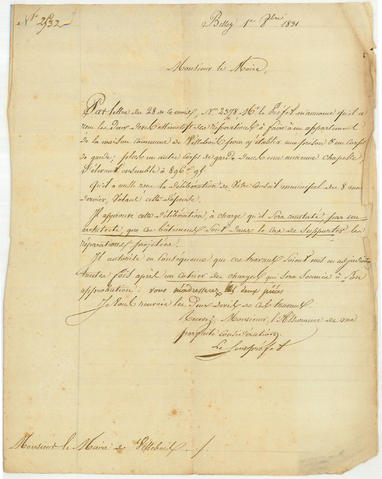 N° 2532
Belley 1er 1831
Monsieur le Maire,
Par lettre du 28 de ce mois, N° 2378 Mr le Préfet m'annonce qu'il a
vu les Deux devis estimatifs des réparations à faire à un appartement
de la maison commune de pour y établir une prison & un corps
de garde; plus un autre corps de garde dans une ancienne chapelle
s'élevant ensemble à 896f 95
Qu'il a mêlé avec la délibération de Votre Conseil municipal du 8 mai
dernier, votant cette dépense.
Il approuve cette délibération, à charge qu'il soit constaté, par un
architecte, que ces bâtiments sont dans le cas de supporter les
réparations projetées.
Il autorise en conséquence que ces travaux soient mis en adjudication
toutes fois après un cahier des charges qui sera soumis à son
approbation. vous m'adresserez les deux pièces
Je vous renvoie les Deux Devis de ces travaux
Recevez, Monsieur, l'assurance de ma
parfaite considération
Le Sous préfet
Monsieur le Maire de